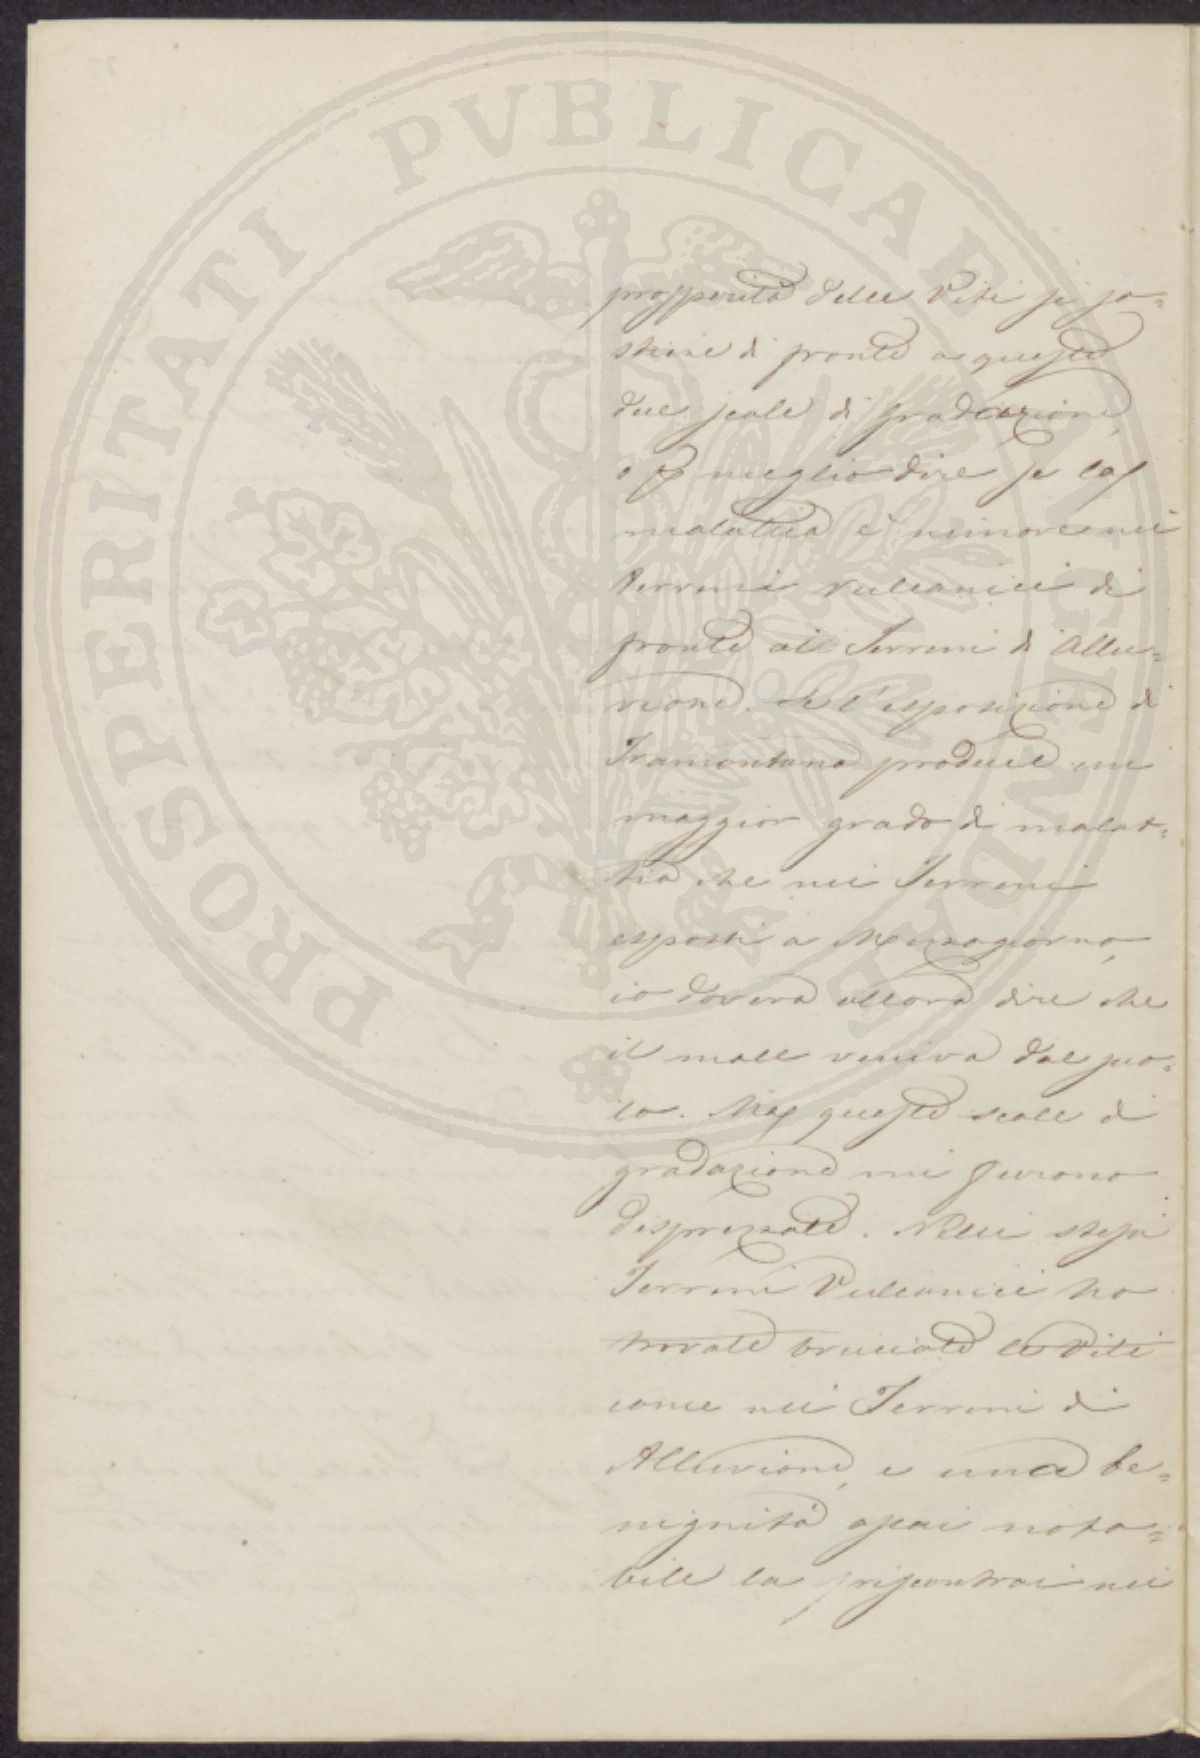 PROSPERITATI PVBLICAE AVGENDAE
prosperità delle Viti si so=
stiene di fronte a queste
due scale di gradazione,
o p meglio dire se la
malattia è minore nei
Terreni Vulcanici di
fronte ai Terreni di Allu=
vione. Se l'esposizione di
Tramontana produce un
maggior grado di malat=
tia che nei Terreni
esposti a Mezzogiorno,
io doverò allora dire che
il male veniva dal suo=
lo. Ma queste scale di
gradazione mi furono
disprezzate. Nelli stessi
Terreni Vulcanici ho
trovate bruciate le Viti
come nei Terreni di
Alluvione, e una be=
nignità assai nota=
bile la riscontrai nei